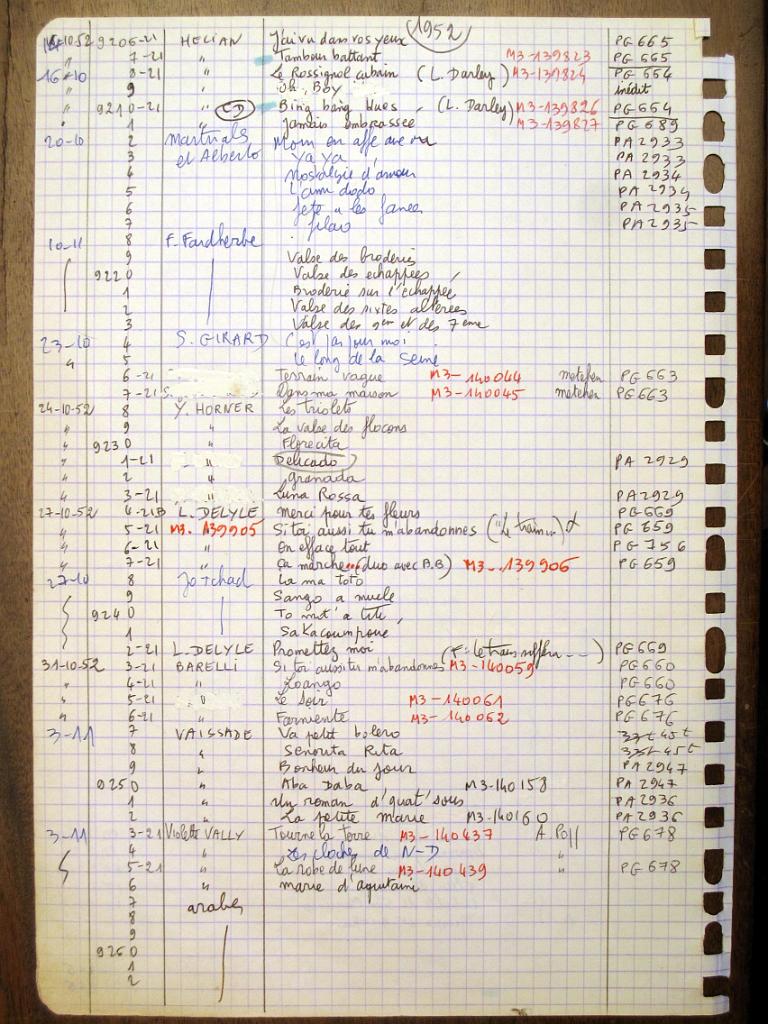 1952
16-10-52 9206-21 HELIAN J'ai vu dans vos yeux PG 665
" 7-21 " Tambour battant M3-139823 PG 665
16-10 8-21 " Le Rossignol cubain (L. Darley) M3-139824 PG 664
" 9 " Oh. Boy inédit
" 9210-21 " CD Bing bang blues, (L. Darley) M3-139826 PG 664
" 1 " Jamais embrassée M3-139827 PG 689
20-10 2 Martials PA 2933
3 et Alberto Ya ya PA 2933
4 Nostalgie d'amour PA 2934
5 L'ami dodo PA 2934
6 PA 2935
7 filao PA 2935
10-11 8 F. Fardherbe
9 Valse des broderies
9220 Valse des echappées
1 Broderie sur l'échappée
2 Valse des sixtes altérées
3 Valse des 9em et des 7eme
23-10 4 S. GIRARD C'est pas pour moi
" 5 Le long de la Seine
6-21 Terrain vague M3-140044 metehen PG 663
7-21 S. Dans ma maison M3-140045 metehen PG 663
24-10-52 8 Y. HORNER Les triolets
" 9 " La valse des flocons
" 9230 " Florecita
" 1-21 " Delicado PA 2929
" 2 " granada
" 3-21 " Luna Rossa PA 2929
27-10-52 4-21B L. DELYLE merci pour tes fleurs PG 669
" 5-21 M3. 139905 Si toi aussi tu m'abandonnes ("Le train...) PG 659
" 6-21 " On efface tout PG 756
" 7-21 " ça marche... (duo avec A.B) M3-.139906 PG 659
27-10 8 Jo Tchad La ma toto
9 Sango a muele
9240 To mit'a titi
1 Sakacoumpoue
2-21 L. DELYLE Promettez moi PG 669
31-10-52 3-21 BARELLI Si toi aussi tu m'abandonnes M3-140059 (F: le train sifflera ...) PG 660
" 4-21 " Loango PG 660
" 5-21 " Le soir M3-140061 PG 676
" 6-21 " Farniente M3-140062 PG 676
3-11 7 VAISSADE Va petit bolero 33t 45t
8 " Senorita Rita 33t 45t
9 " Bonheur du jour PA 2947
9250 " Aba Daba M3-140158 PA 2947
1 " Un roman d'quat' sous PA 2936
2 " La petite marie M3-140160 PA 2936
3-11 3-21 Violette VALLY Tourne la terre M3-140437 A. Poff PG 678
4 " Les cloches de N-D "
5-21 " La robe de lune M3-140439 " PG 678
6 " marie d'aquitaine
7 arabes
8
9
9260
1
2